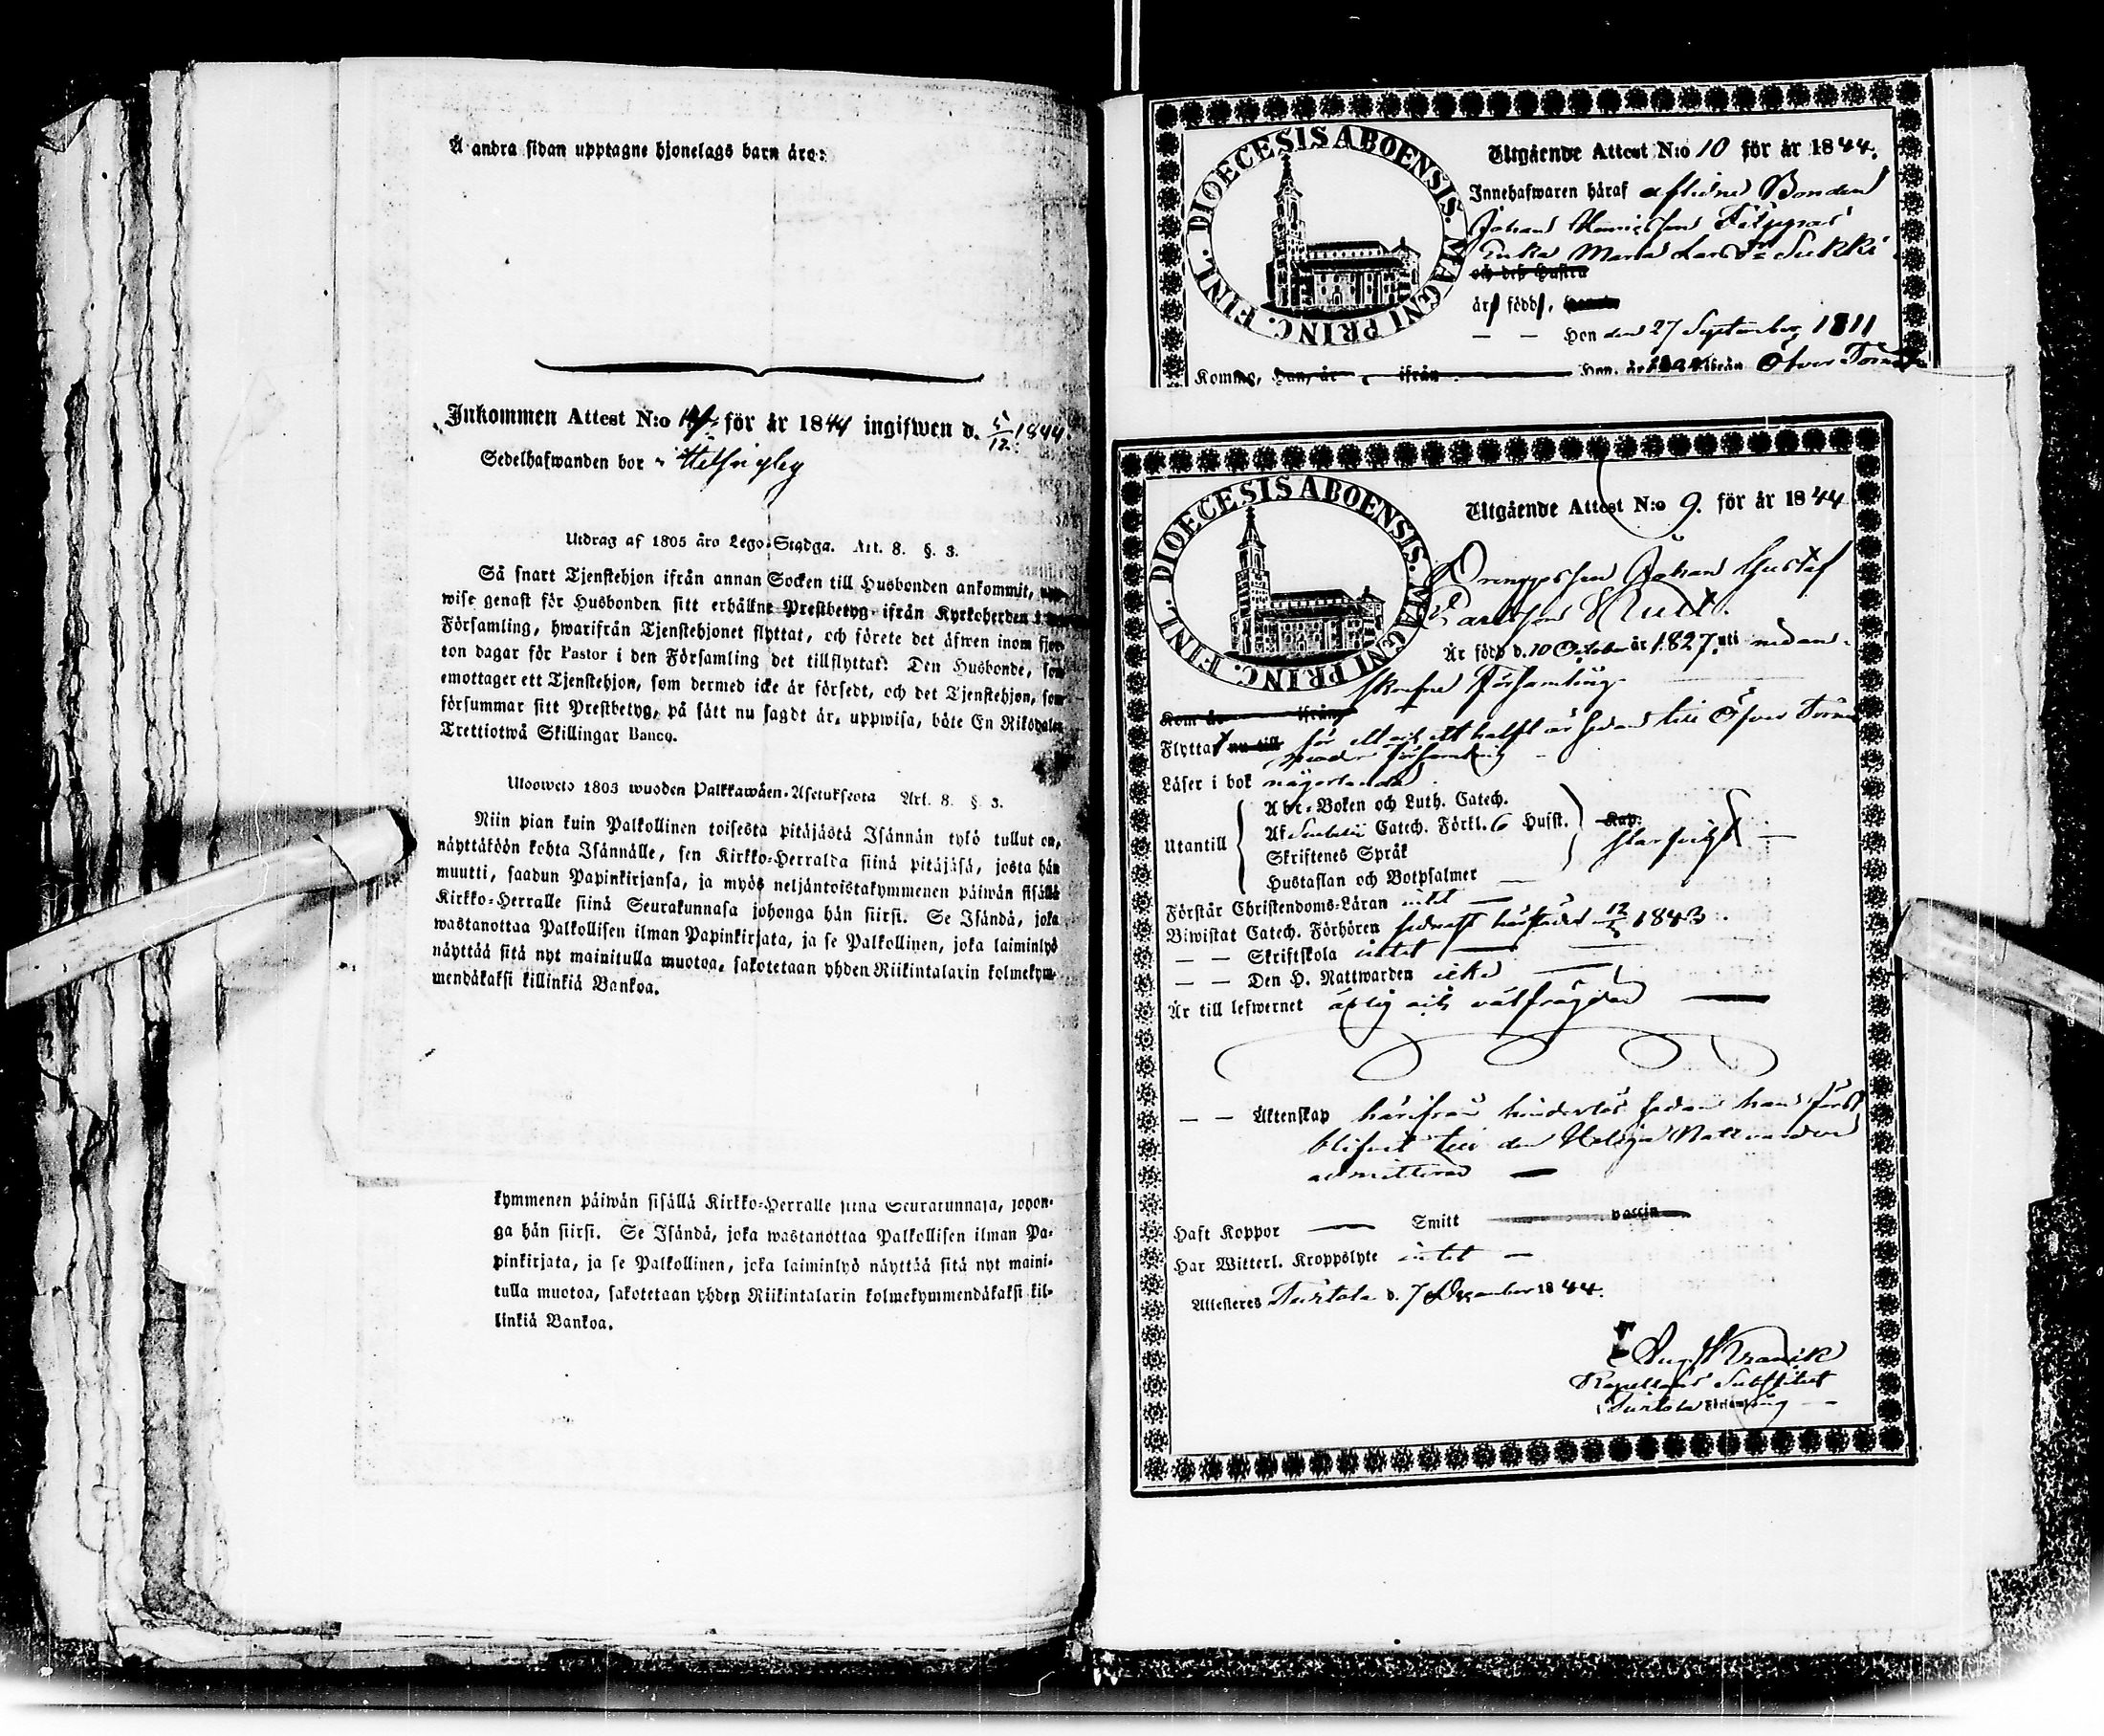 Å andra sidan upptagne hjonelags barn äro:
Inkommen Attest N:o för år 1844 ingifwen d. 5/12 1844.
Sedelhafwanden bor
Utdrag af 1805 års Lego-Stadga. Art. 8. §. 3.
Så snart Tjenstehjon ifrån annan Socken till Husbonden ankommit,
wise genast för Husbonden sitt erhållne Prestbetyg ifrån Kyrkoherden i
Församling, hwarifrån Tjenstehjonet flyttat, och förete det äfwen inom fjor-
ton dagar för Pastor i den Församling det tillflyttat: Den Husbonde, som
emottager ett Tjenstehjon, som dermed icke är försedt, och det Tjenstehjon, som
försummar sitt Prestbetyg, på sätt nu sagdt är, uppwisa, böte En Riksdaler
Trettiotwå Skillingar Banco.
Ulosweto 1805 wuoden Palkkawäen-Asetuksesta Art. 8. §. 3.
Niin pian kuin Palkollinen toisesta pitäjästä Isännän tykö tullut on,
näyttäköön kohta Isännälle, sen Kirkko-Herralda siinä pitäjäsä, josta hän
muutti, saadun Papinkirjansa, ja myös neljäntoistakymmenen päiwän sisällä
Kirkko-Herralle siinä Seurakunnasa johonga hän siirsi. Se Isändä, joka
wastanottaa Palkollisen ilman Papinkirjata, ja se Palkollinen, joka laiminlyö
näyttää sitä nyt mainitulla muotoa, sakotetaan yhden Riikintalarin kolmekym-
mendäkaksi killinkiä Bankoa.
kymmenen päiwän sisällä Kirkko-Herralle siinä Seurakunnasa, johon-
ga hän siirsi. Se Isändä, joka wastanottaa Palkollisen ilman Pa-
pinkirjata, ja se Palkollinen, joka laiminlyö näyttää sitä nyt maini-
tulla muotoa, sakotetaan yhden Riikintalarin kolmekymmendäkaksi kil-
linkiä Bankoa.
DIOECESIS ABOENSIS. MAGNI PRINC. FINL.
Utgående Attest N:o 10 för år 1844.
Innehafwaren häraf aflidne Bonden
Johan Henricsson
Enka Maria Larsdr Sukki
och deß Hustru
är född,
— — Hon den 27 September 1811
Kommo, Han, år ifrån Hon, år ifrån Öfver
DIOECESIS ABOENSIS. MAGNI PRINC. FINL.
Utgående Attest N:o 9. för år 1844
Johan Gustaf
Är född d. 10 October år 1827. uti nedan-
skrefne Församling
Kom år ifrån
Flyttat nu till för ett och ett halft år sedan till Öfver Torne
Församling
Läser i bok någorlunda
Utantill
Abc-Boken och Luth. Catech.
Af Catech. Förkl. 6 Husst.
Skriftenes Språk
Hustaflan och Botpsalmer
Kap.
Förstår Christendoms-Läran
Biwistat Catech. Förhören sednast härstädes 1843.
— — Skriftskola intet
— — Den H. Nattwarden icke
Är till lefwernet ärlig och välfrägdad
— — Äktenskap härifrån hinderlös sedan han först
blifvit till den Heliga Nattvarden
admitterad
Haft Koppor Smitt vaccin
Har Witterl. Kroppslyte intet
Attesteres Turtola d. 7 December 1844.
Kapellans Substitut
i Turtola Församling